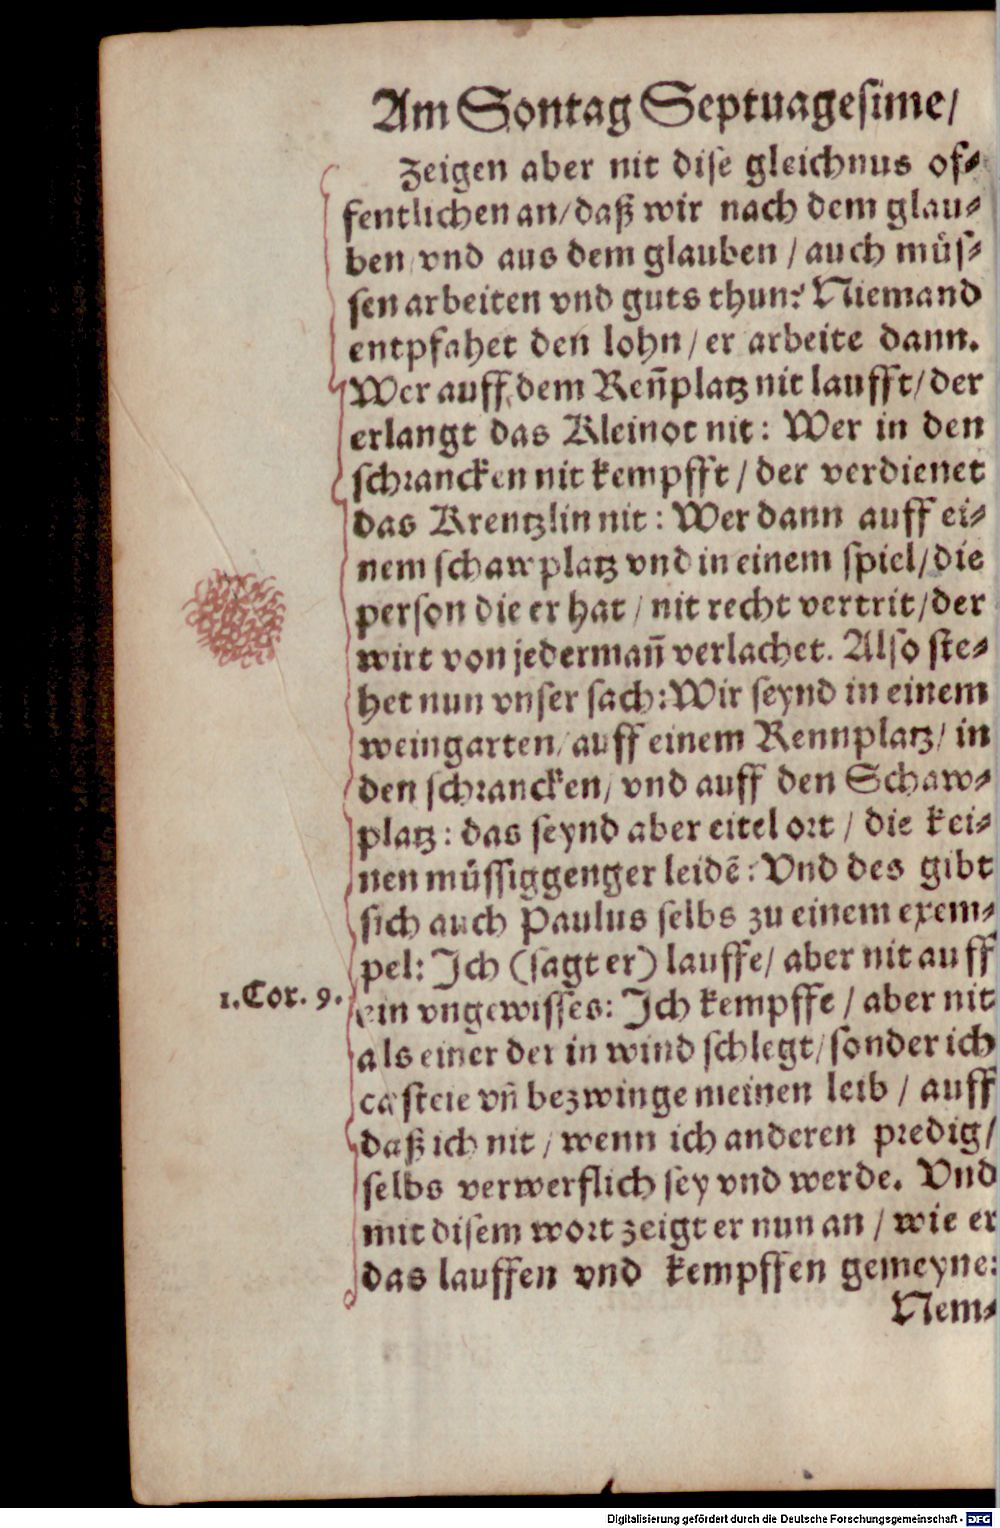 Am Sontag Septuagesime/
Zeigen aber nit dise gleichnus of⸗
fentlichen an/ daß wir nach dem glau⸗
ben/ vnd aus dem glauben / auch müs⸗
sen arbeiten vnd guts thun? Niemand
entpfahet den lohn/ er arbeite dann.
Wer auff dem Reñplatz nit laufft/ der
erlangt das Kleinot nit: Wer in den
schrancken nit kempfft / der verdienet
das Krentzlin nit: Wer dann auff ei⸗
nem schawplatz vnd in einem spiel/ die
person die er hat / nit recht vertrit/ der
wirt von jedermañ verlachet. Also ste⸗
het nun vnser sach: Wir seynd in einem
weingarten/ auff einem Rennplatz/ in
den schrancken/ vnd auff den Schaw⸗
platz: das seynd aber eitel ort / die kei⸗
nen müssiggenger leidẽ: Vnd des gibt
sich auch Paulus selbs zu einem exem⸗
pel: Ich (sagt er) lauffe/ aber nit auff
1.Cor. 9.
ein vngewisses: Ich kempffe / aber nit
als einer der in wind schlegt/ sonder ich
casteie vñ bezwinge meinen leib / auff
daß ich nit / wenn ich anderen predig/
selbs verwerflich sey vnd werde. Vnd
mit disem wort zeigt er nun an / wie er
das lauffen vnd kempffen gemeyne:
Nem⸗
Digitalisierung gefördert durch die Deutsche Forschungsgemeinschaft - DFG